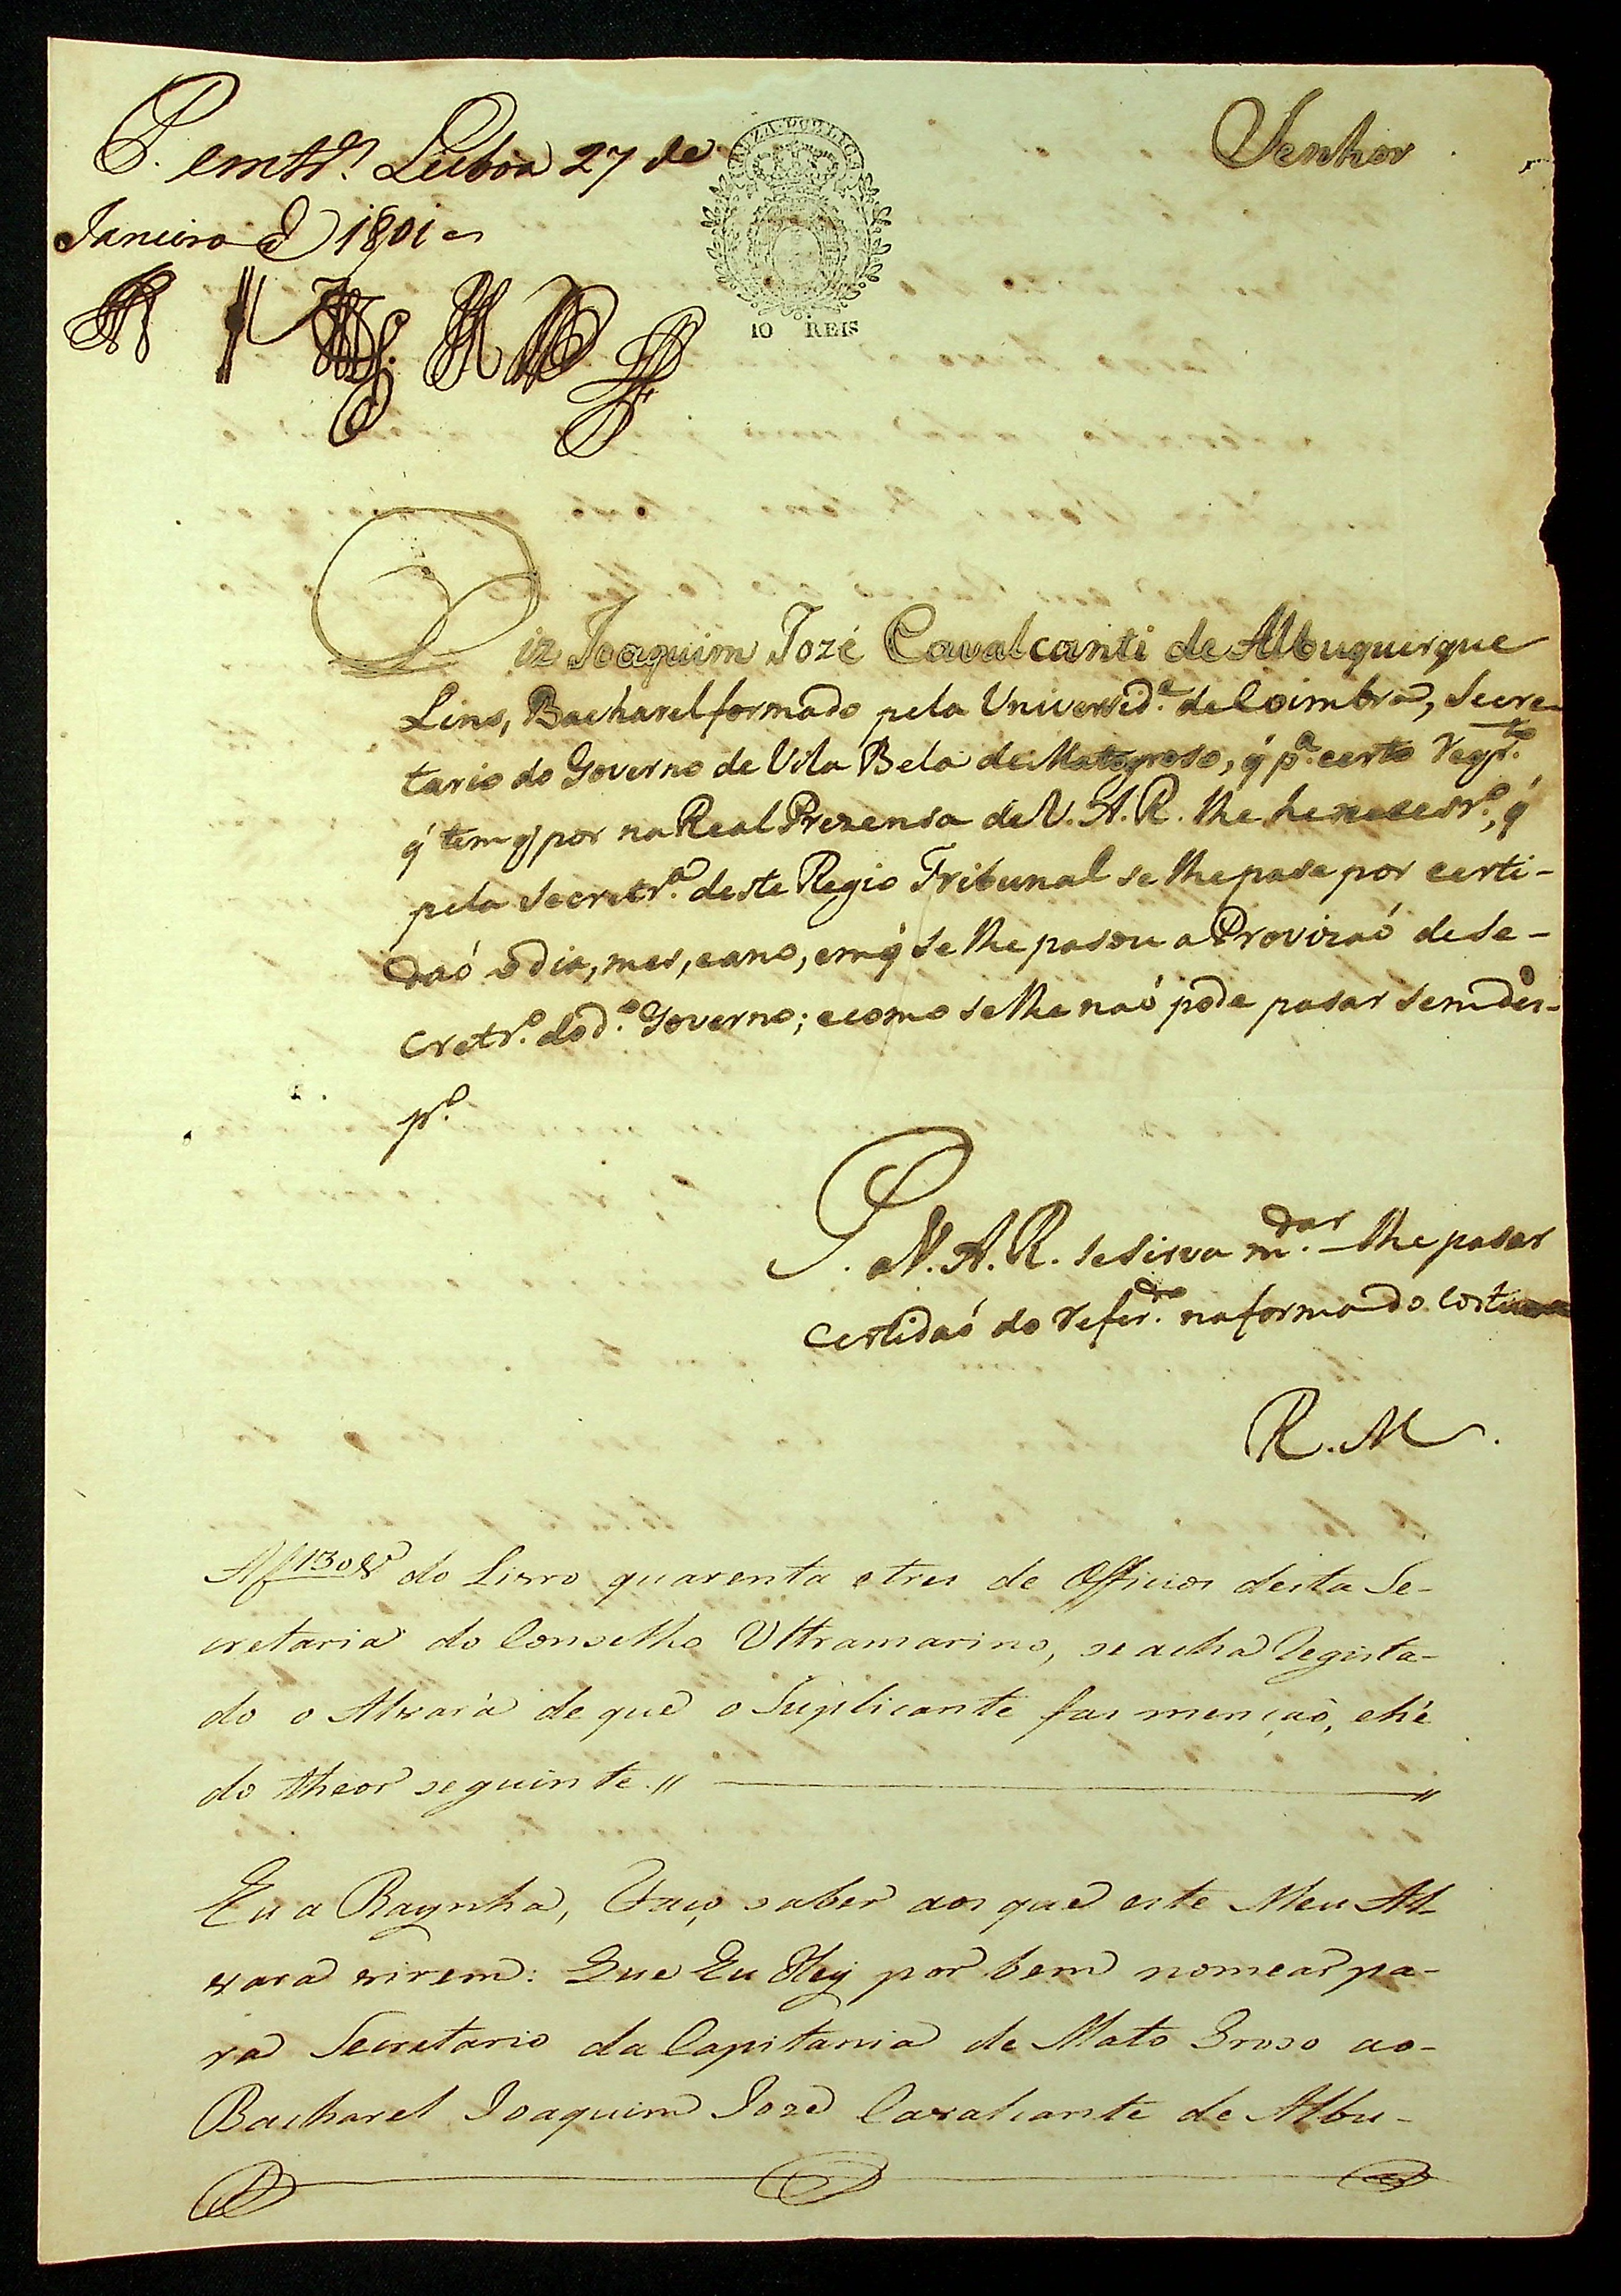 P. emtr.º Lisboa 27 de
Janeiro d 1801
Senhor
10 REIS
Diz Joaquim Jozé Cavalcanti de Albuquerque
Lins, Bacharel formado pela Universid.ᵉ de Coimbra, Secre-
tario do Governo de Vila Bela de Matogroso, q̃ p.ª certo reqr.ᵗᵒ
q̃ tem q̃ por na Real Prezensa de V. A. R. lhe he necesr.º, q̃
pela Secretr.ª deste Regio Tribunal se lhe pase por certi-
daó o dia, mes, e ano, em q̃ se lhe pasou a Provizaó de Se-
cretr.º do d.º Governo; e como se lhe naó pode pasar sem des-
p.º
P. a V. A. R. se sirva m.ᵈᵃʳ lhe pasar
certidaó do refer.ᵈᵒ na forma do costume
R. M.
A f 130 vº do Livro quarenta e tres de Officios desta Se-
cretaria do Conselho Ultramarino, se acha Regista-
do o Alvará de que o Suplicante fas mençaõ, e hé
do theor seguinte. // ———— //
Eu a Raynha, Faço saber aos que este Meu Al-
vara virem: Que Eu Hey por bem nomear pa-
ra Secretario da Capitania de Mato Groso ao
Bacharel Joaquim Joze Cavalcante de Albu-